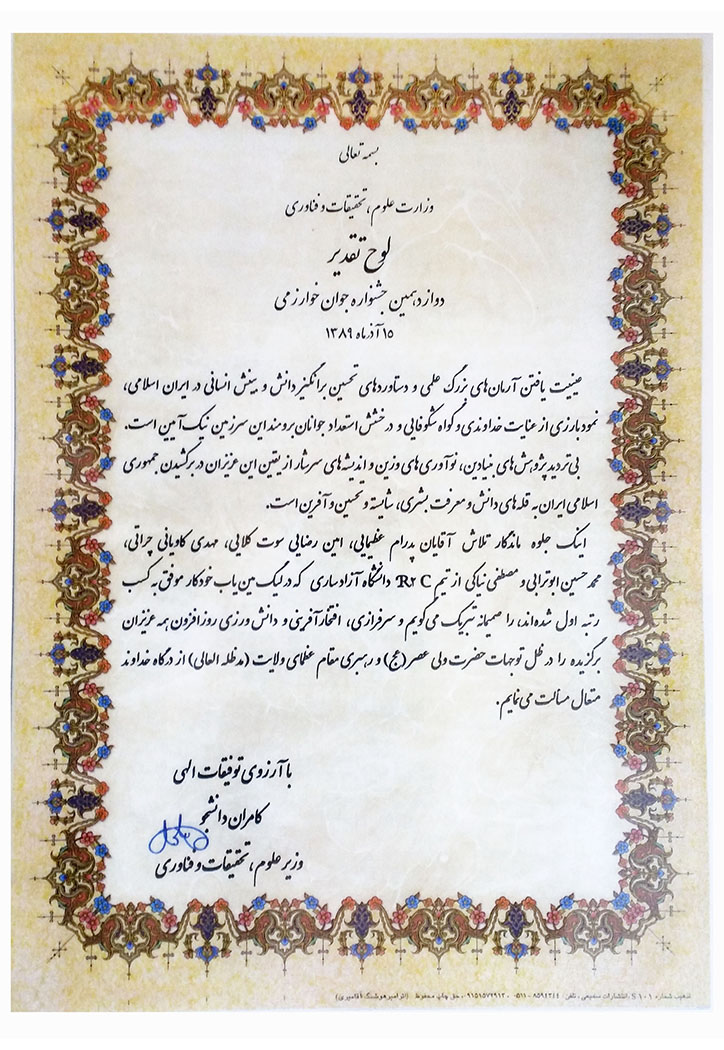 بسمه تعالی
وزارت علوم، تحقیقات و فناوری
لوح تقدیر
دوازدهمین جشنواره جوان خوارزمی
۱۵ آذرماه ۱۳۸۹
عینیت یافتن آرمان‌های بزرگ علمی و دستاوردهای تحسین برانگیز دانش و بینش انسانی در ایران اسلامی،
نمود بارزی از عنایت خداوندی و گواه شکوفایی و درخشش استعداد جوانان برومند این سرزمین نیک آیین است.
بی‌تردید پژوهش‌های بنیادین، نوآوری‌های وزین و اندیشه‌های سرشار از یقین این عزیزان در برکشیدن جمهوری
اسلامی ایران به قله‌های دانش و معرفت بشری، شایسته و تحسین و آفرین است.
اینک جلوه ماندگار تلاش آقایان پدرام عظیمایی، امین رضایی سوت کلایی، مهدی کاویانی چراتی،
محمد حسین ابوترابی و مصطفی نیاکی از تیم R۲C دانشگاه آزاد ساری که در لیگ مین یاب خودکار موفق به کسب
رتبه اول شده‌اند، را صمیمانه تبریک می‌گویم و سرفرازی، افتخارآفرینی و دانش ورزی روزافزون همه عزیزان
برگزیده را در ظل توجهات حضرت ولی عصر (عج) و رهبری مقام عظمای ولایت (مدظله العالی) از درگاه خداوند
متعال مسالت می‌نمایم.
با آرزوی توفیقات الهی
کامران دانشجو
وزیر علوم، تحقیقات و فناوری
تذهیب شماره S ۱۰۱ انتشارات سمیعی، تلفن ۸۵۹۴۲۷۴ - ۰۵۱۱ ۰۹۱۵۱۵۷۷۹۱۳، حق چاپ محفوظ (اثر امیرهوشنگ آقامیری)